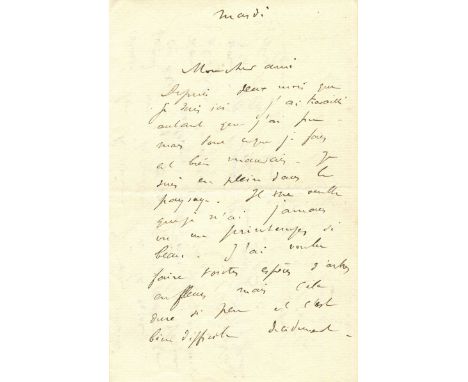 mardi
Mon cher ami
Depuis deux mois que
je suis ici j'ai travaillé
autant que j'ai pu
mais tout ce que je fais
est bien mauvais. Je
suis en plein dans le
paysage. Il me semble
que je n'ai jamais
vu un printemps si
beau. J'ai voulu
faire toutes espèces d'arbres
en fleurs mais cela
dure si peu et c'est
bien difficile décidément.